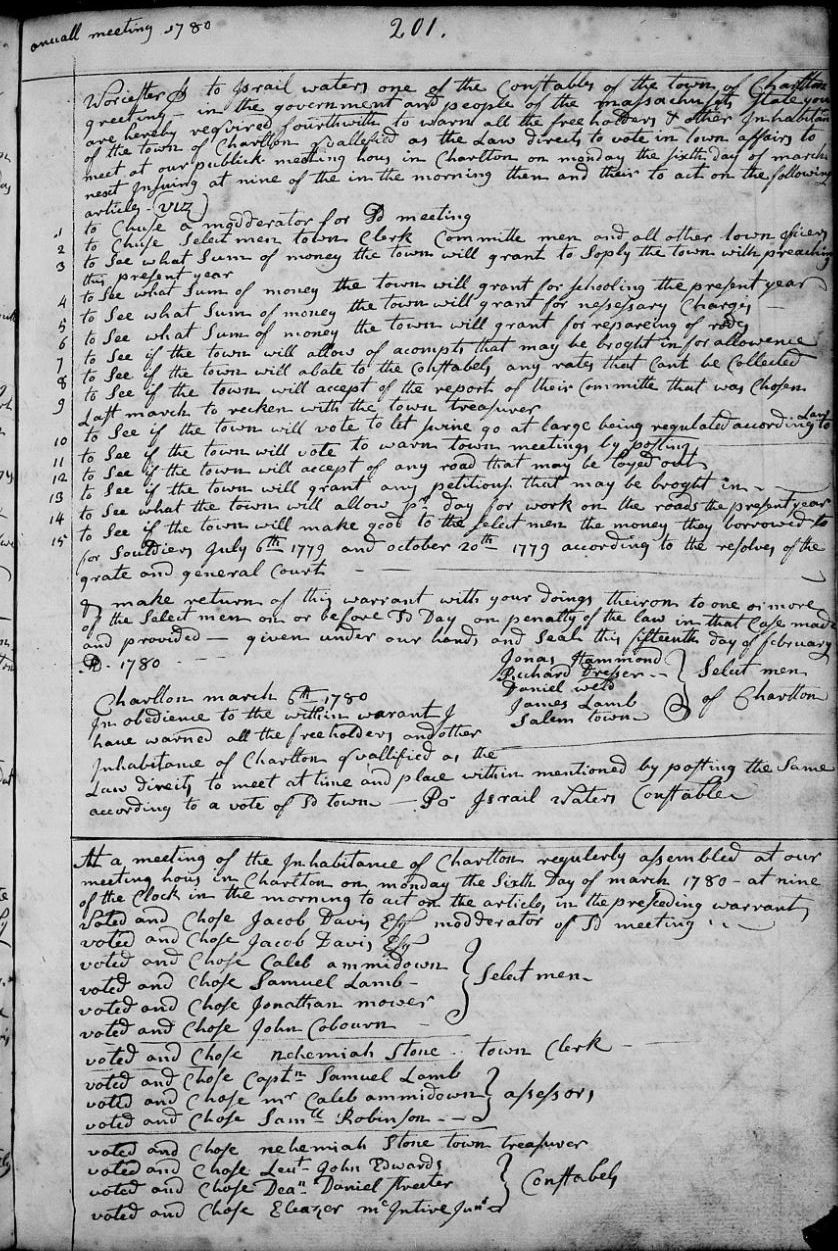 annuall meeting 1780
201.
Worcester Ss to Israil waters one of the Constables of the town of Charlton
greeting - in the government and people of the massachusets State you
are hereby required fourthwith to warn all the freeholders & other Inhabitan
of the town of Charlton quallefied as the Law directs to vote in town affairs to
meet at our publick meeting hous in Charlton on monday the sixth day of march
next Insuing at nine of the in the morning then and their to act on the following
articles - (viz)
1 to Chuse a modderator for Sd meeting
2 to Chuse Select men town Clerk Committe men and all other town officers
3 to See what Sum of money the town will grant to Soply the town with preaching
this present year
4 to See what Sum of money the town will grant for schooling the present year
5 to See what Sum of money the town will grant for nessessary Charges
6 to See what Sum of money the town will grant for repareing of rods
7 to See if the town will allow of acompts that may be broght in for allowence
8 to See if the town will abate to the Constabels any rates that Cant be Collected
9 to See if the town will accept of the report of their Committe that was Chosen
Last march to recken with the town treasurer
10 to See if the town will vote to let swine go at large being regulated according to Law
11 to See if the town will vote to warn town meetings by posting
12 to See if the town will accept of any road that may be layed out
13 to See if the town will grant any petitions that may be broght in
14 to See what the town will allow pr day for work on the roads the present year
15 to See if the town will make good to the Select men the money they borrowed to
for Souldiers July 6th 1779 and october 20th 1779 according to the resolves of the
grate and general Court
& make return of this warrant with your doings theiron to one or more
of the Select men on or before Sd Day on penalty of the law in that Case made
and provided - given under our hands and Seals this fifteenth day of february
AD. 1780
Jonas Hammond
Richard Dresser
Daniel weld
James Lamb
Salem town
Select men
of Charlton
Charlton march 6th 1780
In obedience to the within warant I
have warned all the freeholders and other
Inhabitance of Charlton quallified as the
Law directs to meet at time and place within mentioned by posting the Same
according to a vote of Sd town - Pr Israil Waters Constable
At a meeting of the Inhabitance of Charlton regulerly assembled at our
meeting hous in Charlton on monday the Sixth Day of march 1780 - at nine
of the Clock in the morning to act on the articles in the preseding warrant
Voted and Chose Jacob Davis Esqr modderator of Sd meeting
voted and Chose Jacob Davis Esqr
voted and Chose Caleb ammidown
voted and Chose Samuel Lamb -
voted and Chose Jonathan mower
voted and Chose John Cobourn -
Select men
voted and Chose nehemiah Stone town Clerk
voted and Chose Captn Samuel Lamb
voted and Chose mr Caleb ammidown
voted and Chose Samll Robinson
assessors
voted and Chose nehemiah Stone town treasurer
voted and Chose Leut John Edwards
voted and Chose Dean Daniel Streeter
voted and Chose Eleazer mcIntire Junr
Constabels